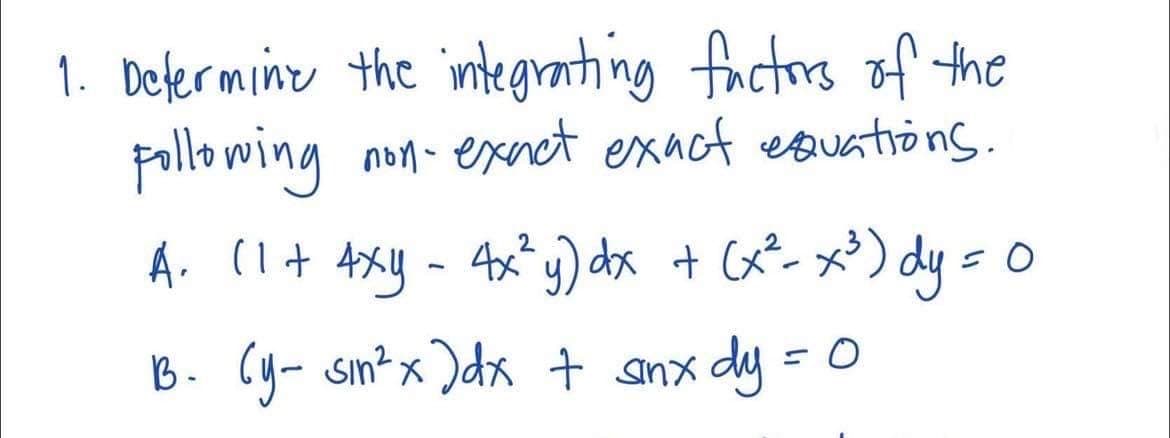 1. Determine the integrating factors of the
following non-exact exact equations.
A. (1 + 4xy - 4x²y) dx + (x² - x³) dy = 0
B. (y - sin²x) dx + sinx dy = 0